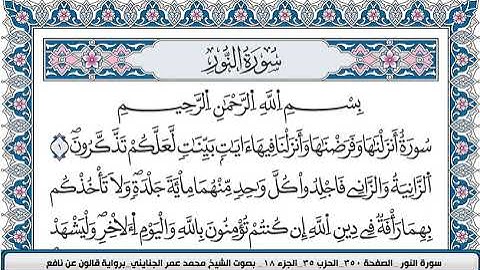 سُورَةُ النُّورِ
بِسْمِ اللَّهِ الرَّحْمَٰنِ الرَّحِيمِ
سُورَةٌ أَنزَلْنَٰهَا وَفَرَضْنَٰهَا وَأَنزَلْنَا فِيهَا ءَايَٰتٍ بَيِّنَٰتٍ لَّعَلَّكُمْ تَذَّكَّرُونَ ١
اَ۬لزَّانِيَةُ وَالزَّانِے فَاجْلِدُواْ كُلَّ وَٰحِدٍ مِّنْهُمَا مِاْئَةَ جَلْدَةٍ وَلَا تَأْخُذْكُم
بِهِمَا رَأْفَةٌ فِي دِينِ اِ۬للَّهِ إِن كُنتُمْ تُؤْمِنُونَ بِاللَّهِ وَالْيَوْمِ اِ۬لَاخِرِ وَلْيَشْهَدْ
سورة النور_ الصفحة ٣٥٠_ الحزب ٣٥_ الجزء ١٨ _ بصوت الشيخ محمد عمر الجنايني_ برواية قالون عن نافع